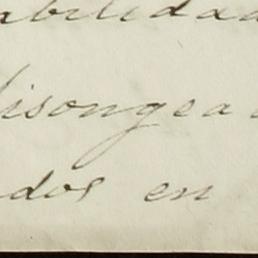 abilidad
lisongea
dos en